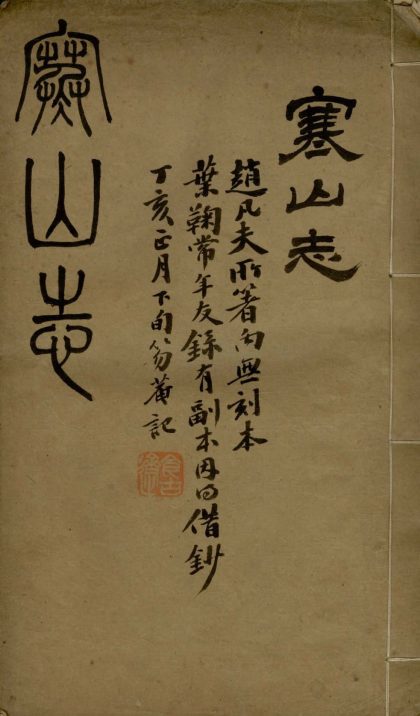 寒山志
趙凡夫所著向無刻本
葉鞠常年友錄有副本因借鈔
丁亥正月下旬笏菴記
寒山志